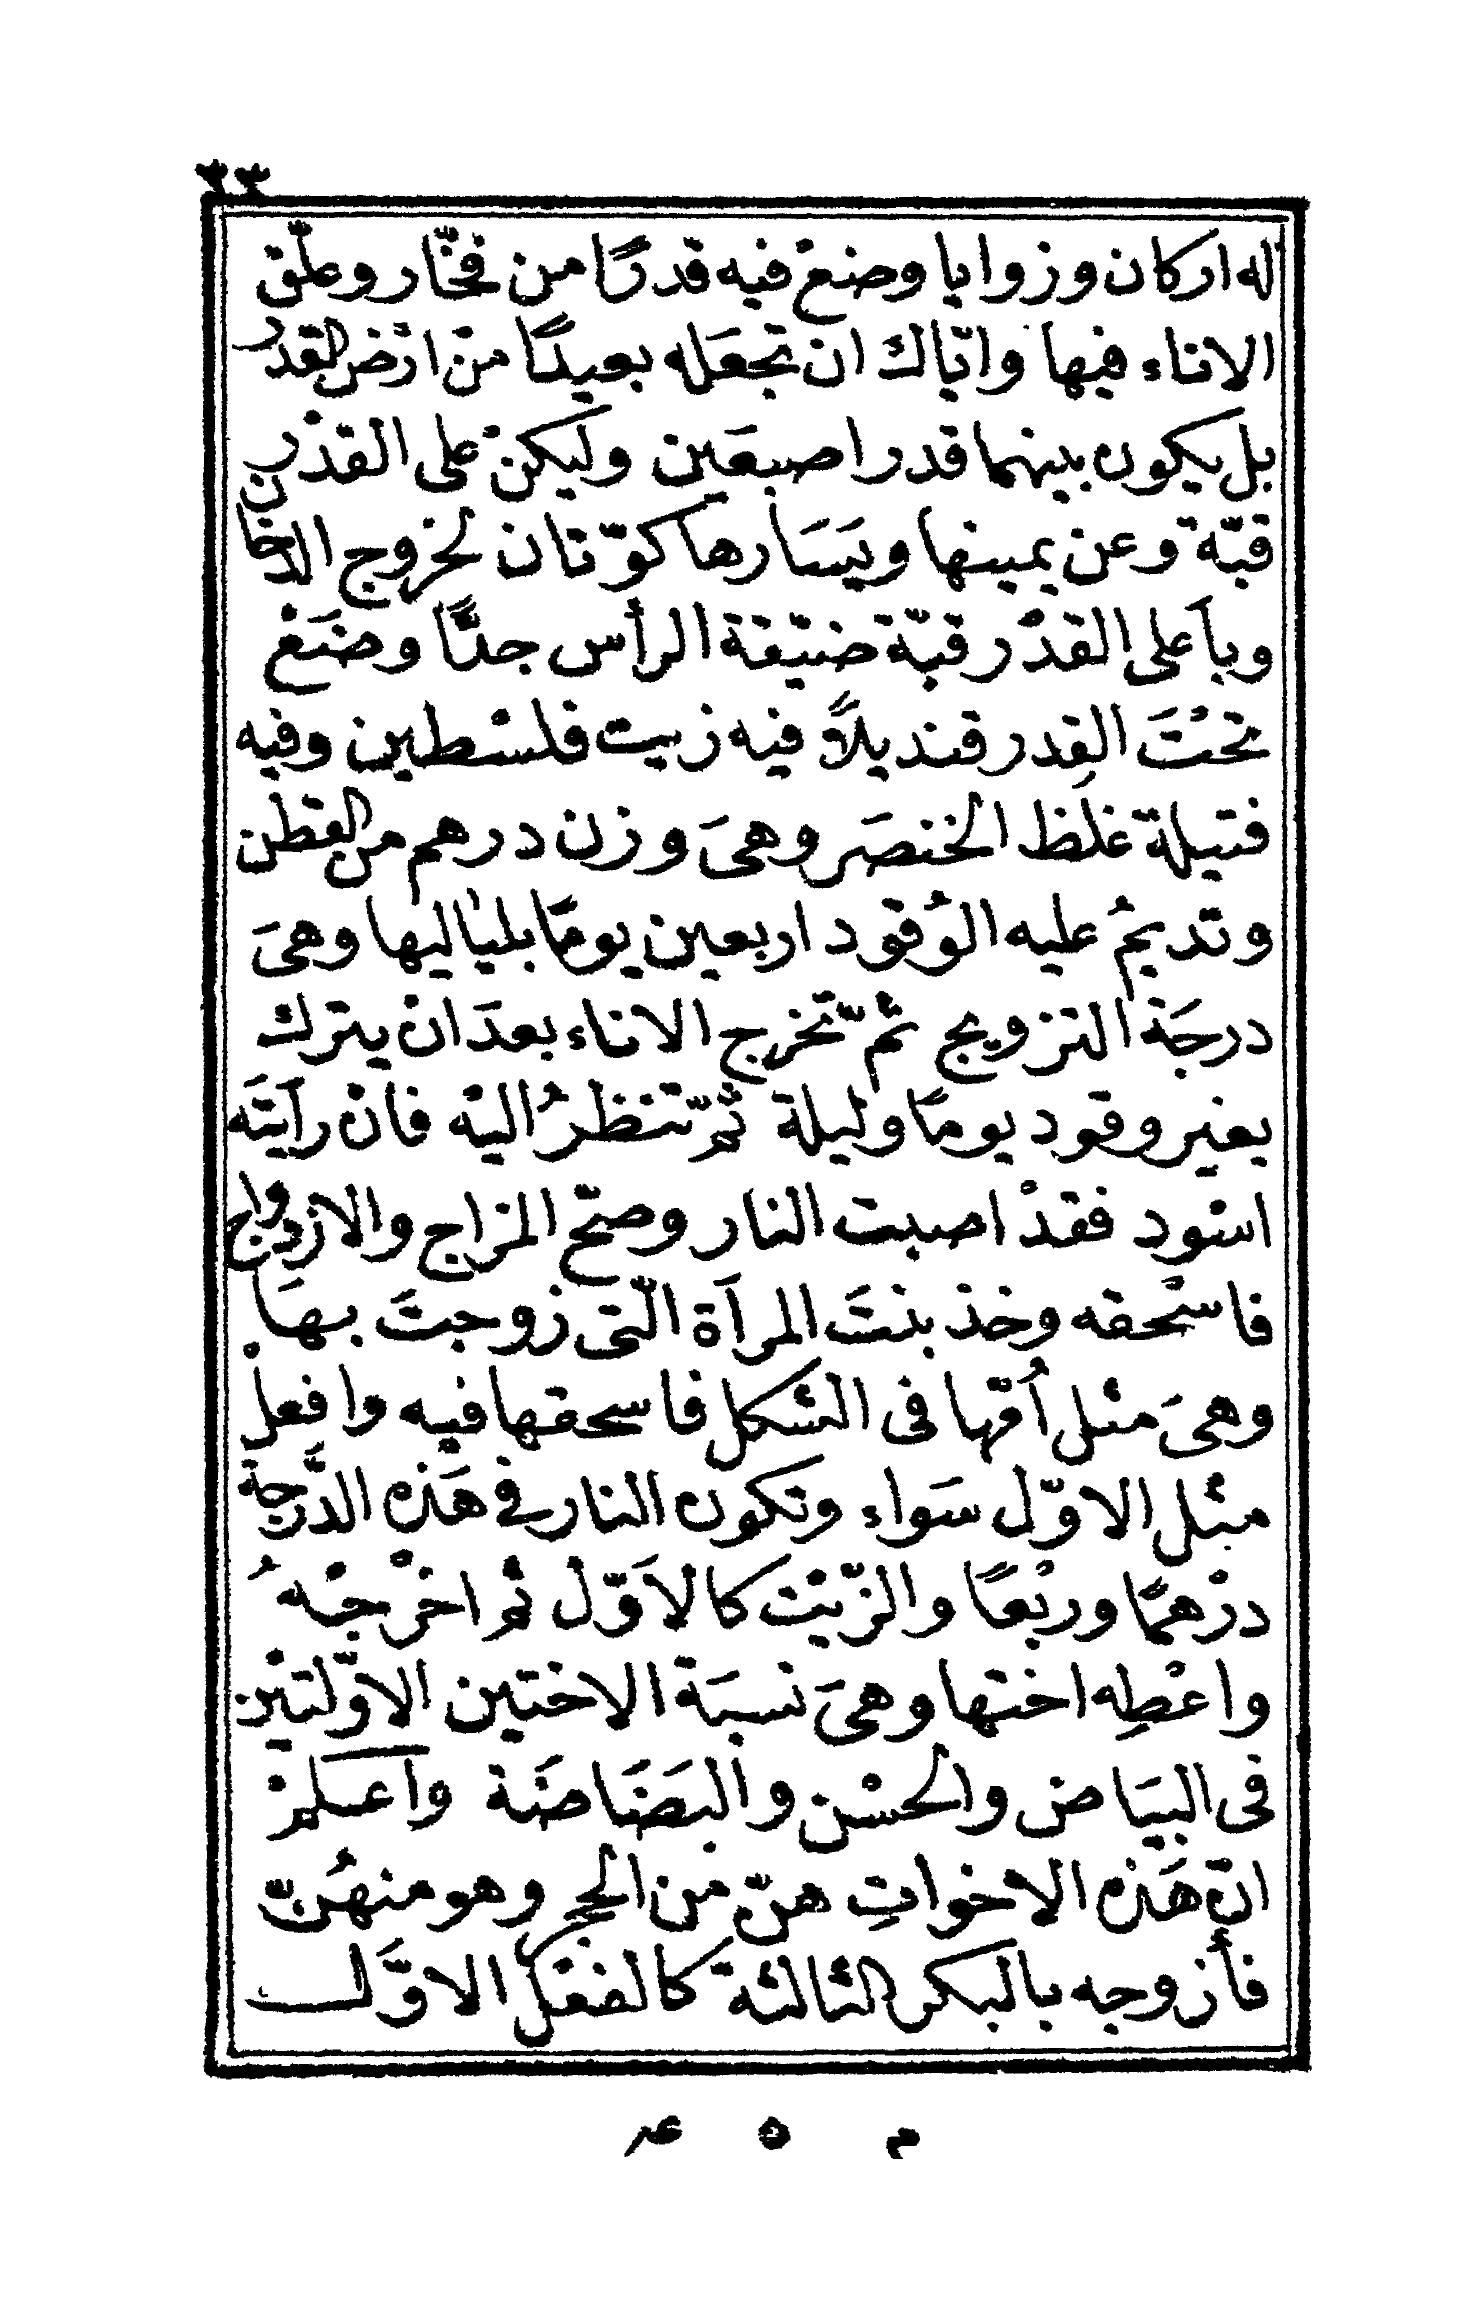 ٣٣
له اركان وزوايا وضعْ فيه قدرًا من فخّار وعلّق
الاناء فيها واياك ان تجعَله بعيدًا منْ ارْض القدر
بل يكون بينهما قدر اصبعَين وليكنْ على القدْر
قبّة وعن يمينها ويَسَارها كوّتان لخروج الدخان
وبأعلى القدْر قبّة ضيّقة الرأس جدًّا وضَعْ
تحْتَ القِدر قنديلاً فيه زيت فلسْطين وفيه
فتيلة غلَظ الخنصَر وهىَ وزن درهم من القطن
وتديمُ عليه الوُقود اربعين يومًا بلياليها وهىَ
درجَة التزويج ثمّ تخرج الاناء بعدَ انْ يترك
بغير وقود يومًا وليلة ثمّ تنظرُ اليْه فانْ رأيتَه
اسْود فقدْ اصبت النار وصحّ المزاج والازدواج
فاسْحقه وخذ بنتَ المرأة الّتى زوجتَ بهَا
وهىَ مثل اُمّها فى الشكل فاسحقها فيه وافعلْ
مثْل الاوّل سَواء وتكون النار فى هَذه الدّرجَة
درْهمًا وربْعًا والزّيْت كالأوّل ثم اخْرجْهُ
واعْطِه اختها وهىَ نسبَة الاختين الاوّلتيْن
فى البيَاض والحسْن والبَضَاضَة واعَلمْ
انّ هَذه الاخواتِ هنّ من الحجر وهو منهُنّ
فأزوجه بالبكر الثالثة كالفعْل الاوَّل
م ٥ عـ